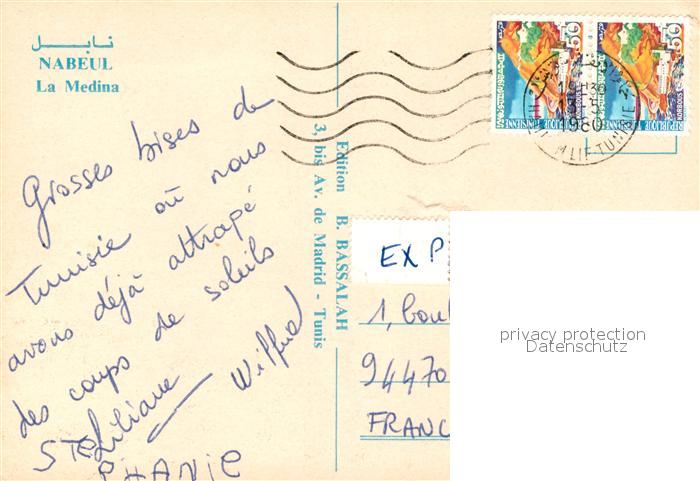 نابل
NABEUL
La Medina
Grosses bises de
Tunisie où nous
avons déjà attrapé
des coups de soleils
Liliane Wilfried
STE
PHANIE
Edition B. BASSALAH
3, bis Av. de Madrid - Tunis
50
50
KORBOUS
KORBOUS
REPUBLIQUE TUNISIENNE
REPUBLIQUE TUNISIENNE
1980
M LIF-TUNISIE
EX P
1, boul
94470
FRANC
privacy protection
Datenschutz